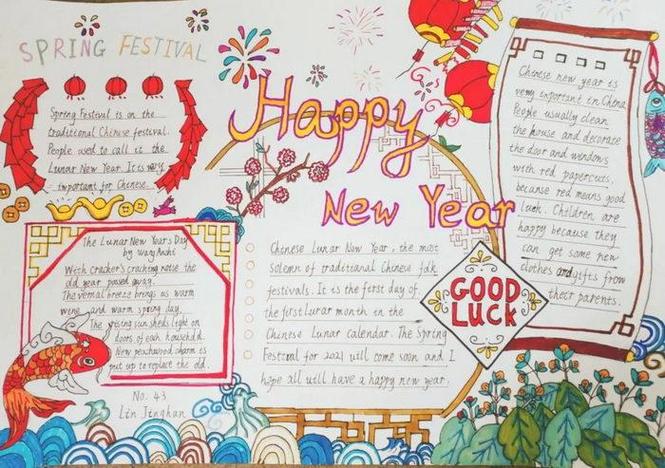 SPRING FESTIVAL
Happy
New Year
Spring Festival is on the
traditional Chinese festival.
People used to call it the
Lunar New Year. It is very
important for Chinese.
The Lunar New Year's Day
by Wang Anshi
With cracker's cracking noise the
old year passed away.
The vernal breeze brings us warm
wine and warm spring day.
The rising sun sheds light on
doors of each household.
New peachwood charm is
put up to replace the old.
No. 43
Lin Jinghan
Chinese Lunar New Year, the most
solemn of traditional Chinese folk
festivals. It is the first day of
the first lunar month in the
Chinese Lunar calendar. The Spring
Festival for 2021 will come soon and I
hope all will have a happy new year.
GOOD
LUCK
Chinese new year is
very important in China.
People usually clean
the house and decorate
the door and windows
with red papercuts,
because red means good
luck. Children are
happy because they
can get some new
clothes and gifts from
their parents.